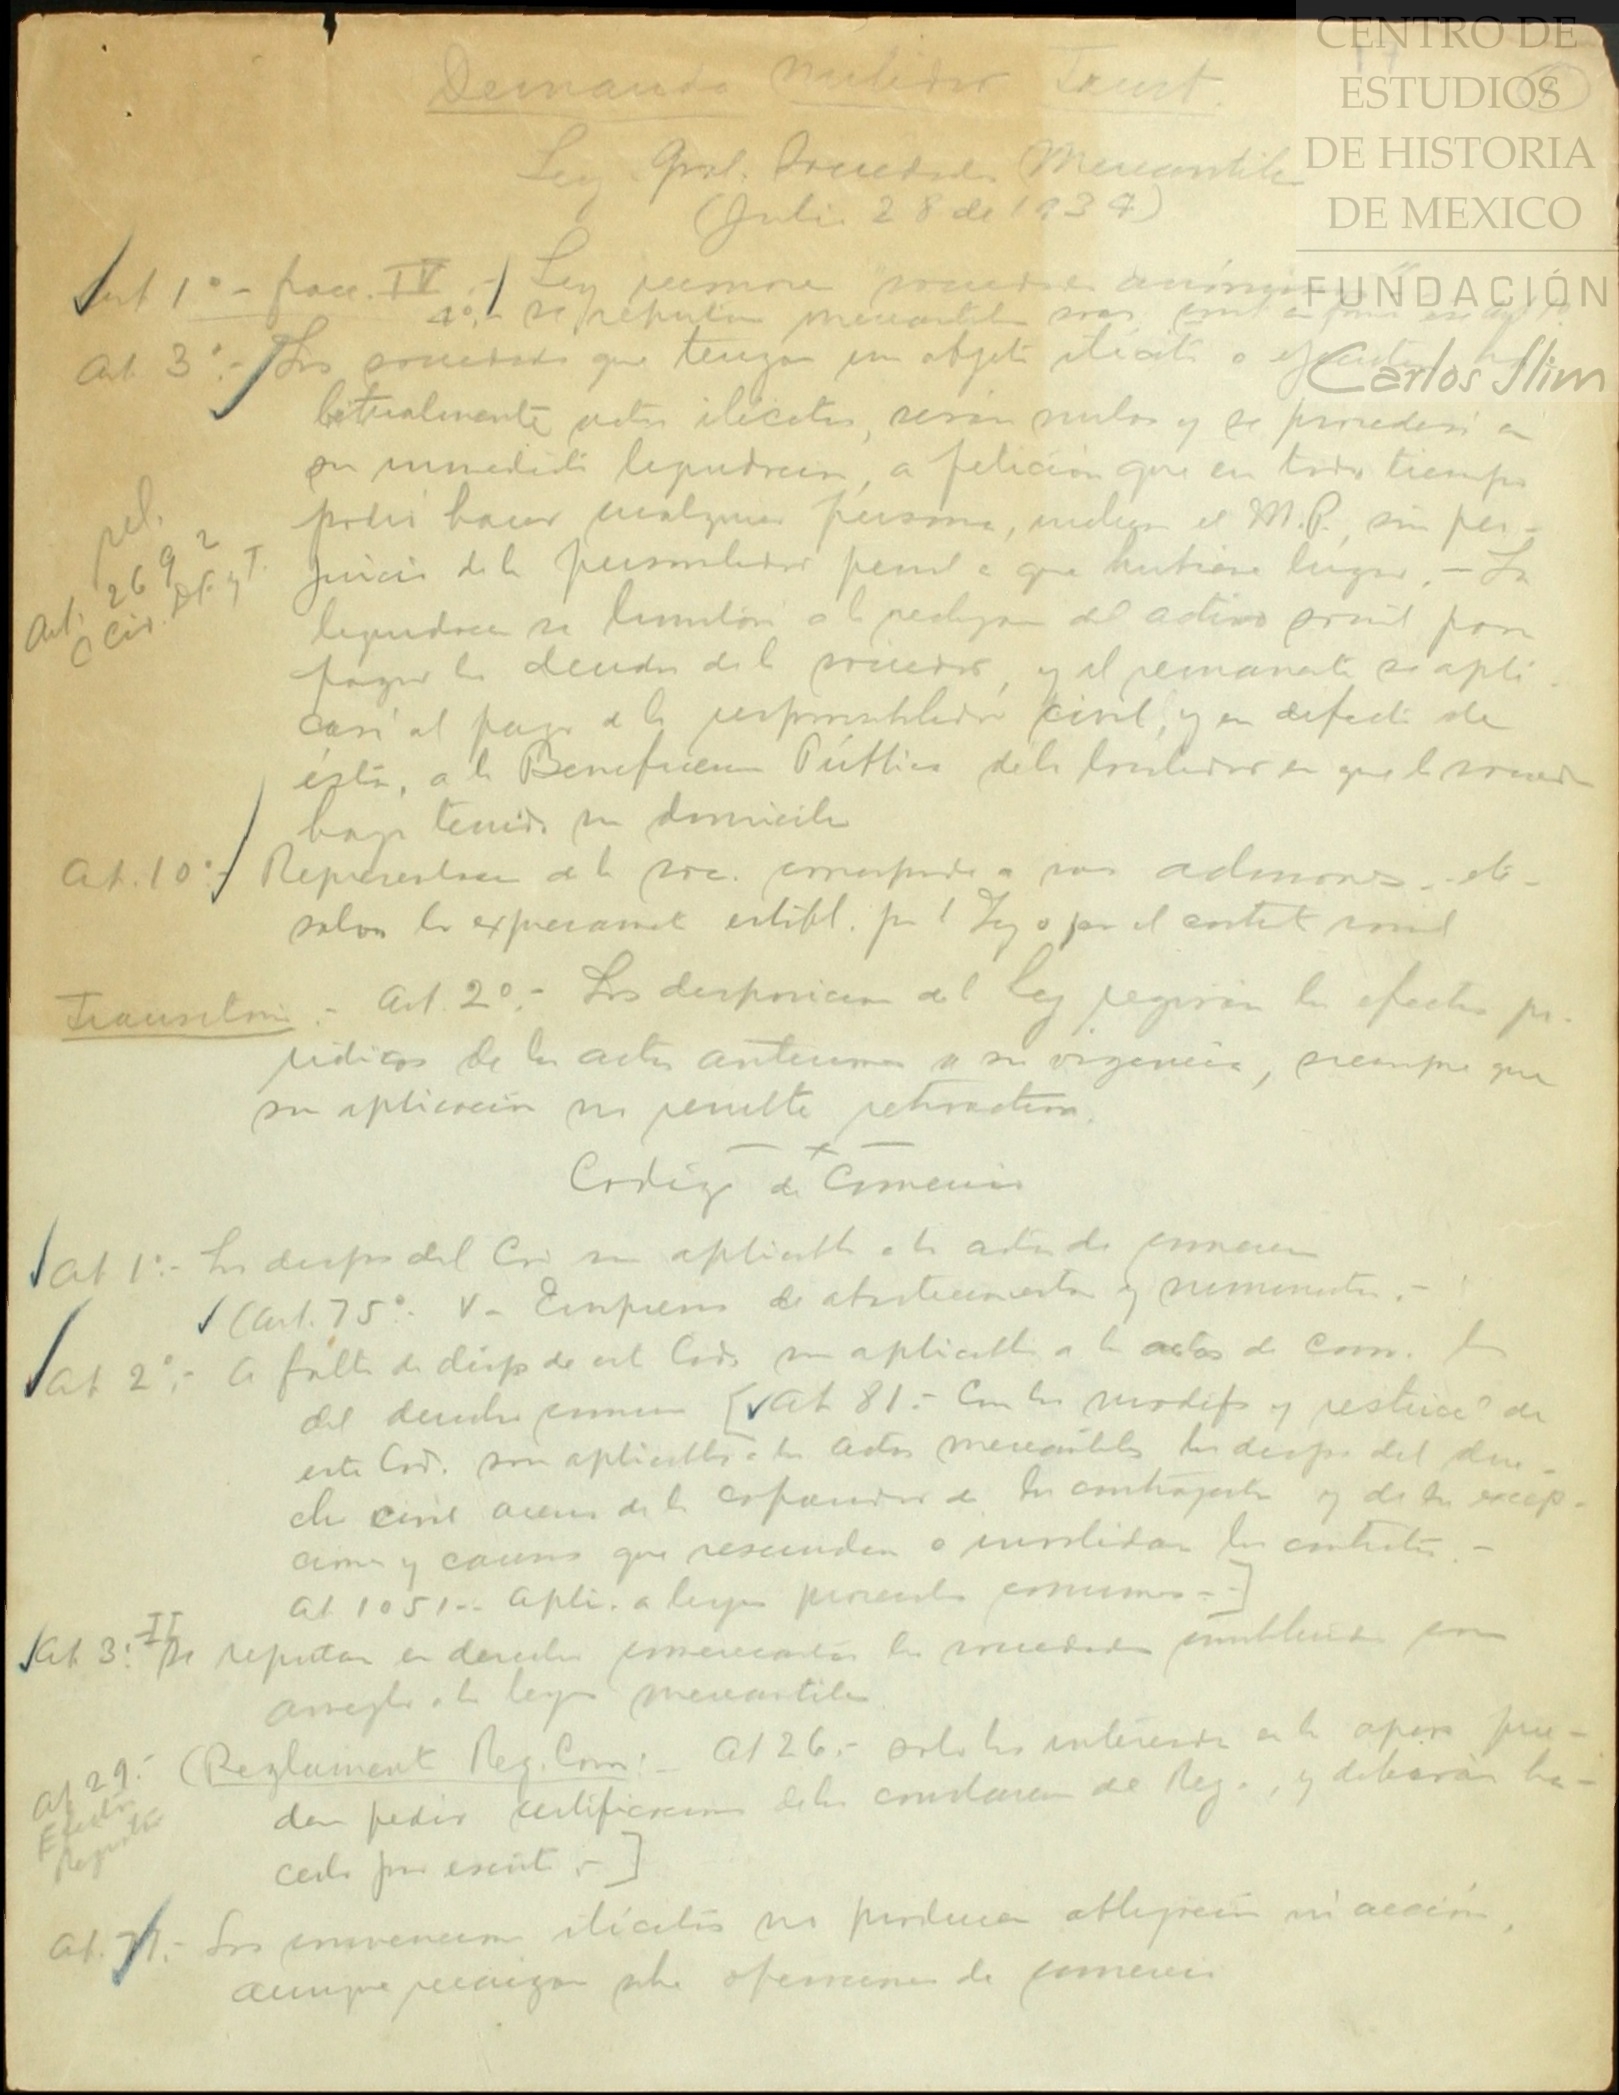 CENTRO DE
ESTUDIOS
DE HISTORIA
DE MEXICO
FUNDACIÓN
Carlos Slim
Demanda nulidad Trust.
Ley Gral. Sociedades Mercantiles
(Julio 28 de 1934)
Art 1º - fracc. IV.- Ley reconoce sociedad anónima
4º.- se reputan mercantiles
Art. 3º.- Las sociedades que tengan un objeto ilícito o ejecuten ha
bitualmente actos ilícitos, serán nulas y se procederá a
su inmediata liquidación, a petición que en todo tiempo
podrá hacer cualquier persona, incluso el M.P., sin per-
juicio de la responsabilidad penal a que hubiere lugar.- La
liquidación se limitará a la realización del activo social para
pagar las deudas de la sociedad, y el remanente se apli
cará al pago de la responsabilidad civil, y en defecto de
ésta, a la Beneficencia Pública de la localidad en que la sociedad
haya tenido su domicilio
rel.
Art. 2692
C Civ. DF. y T.
Art. 10º.- Representación de la soc. corresponde a sus admores.
salvo lo expresamte establ. por l Ley o por el contrato social
Transitorio.- Art. 2º.- Las disposiciones de l Ley regirán los efectos ju-
rídicos de los actos anteriores a su vigencia, siempre que
su aplicación no resulte retroactiva.
- x -
Código de Comercio
Art 1º.- Las disps del Co son aplicables a los actos de comercio
(Art. 75º.- V- Empresas de abastecimientos y suministros.-
Art 2º.- A falta de disps de est Cod. son aplicables a los actos de com. los
del derecho común [Art 81.- Con las modifs y restricc de
este Cod. son aplicables a los actos mercantiles las disps del dere-
cho civil acerca de la capacidad de los contrayentes y de las excep-
ciones y causas que rescinden o invalidan los contratos.-
Art 1051.- Aplic. a leyes procesales comunes.-]
Art 3º. II Se reputan en derecho comerciantes las sociedades constituidas con
arreglo a las leyes mercantiles
Art 29.-
Efectos
Registro
(Reglamento Reg. Com.- Art 26.- solo los interesados
dan pedir certificaciones de las constancias del Reg., y deberán ha-
cerlo por escrito.-]
Art. 77.- Las convenciones ilícitas no producen obligación ni acción,
aunque recaigan sobre operaciones de comercio